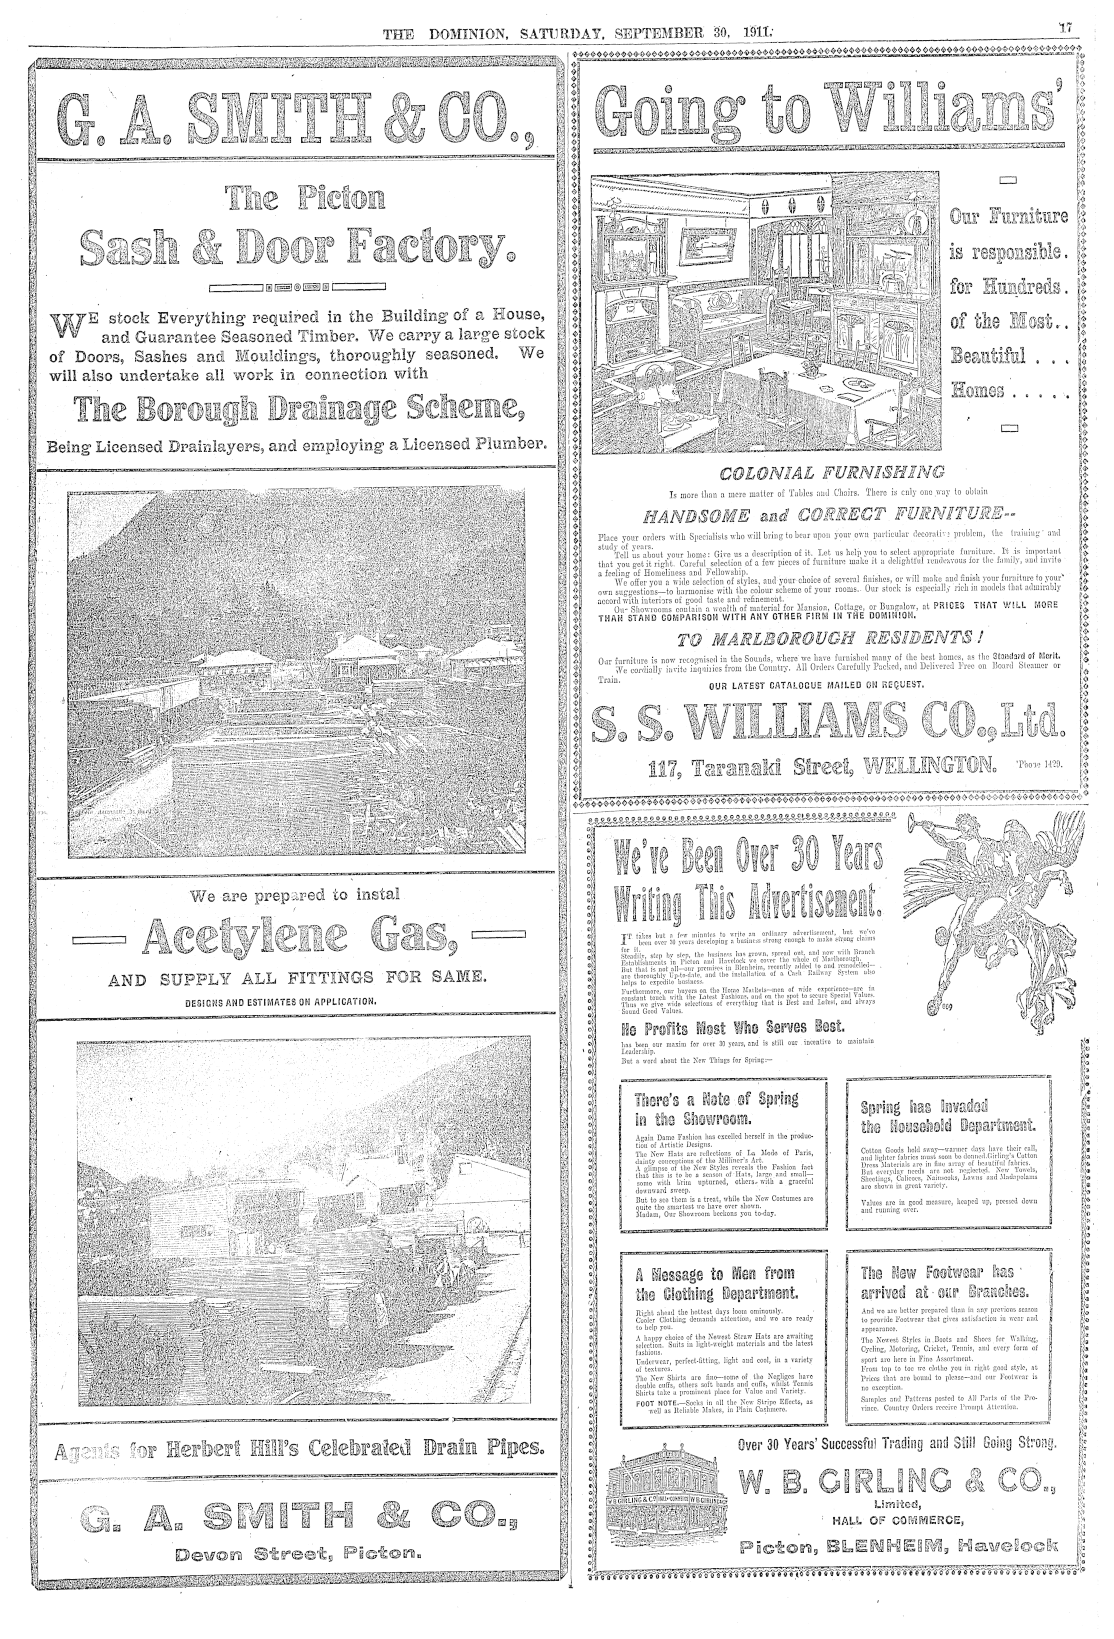 THE DOMINION, SATURDAY, SEPTEMBER 30, 1911.
17
G. A. SMITH & CO.,
The Picton
Sash & Door Factory.
WE stock Everything required in the Building of a House,
and Guarantee Seasoned Timber. We carry a large stock
of Doors, Sashes and Mouldings, thoroughly seasoned. We
will also undertake all work in connection with
The Borough Drainage Scheme,
Being Licensed Drainlayers, and employing a Licensed Plumber.
We are prepared to instal
Acetylene Gas,
AND SUPPLY ALL FITTINGS FOR SAME.
DESIGNS AND ESTIMATES ON APPLICATION.
Agents for Herbert Hill's Celebrated Drain Pipes.
G. A. SMITH & CO.,
Devon Street, Picton.
Going to Williams'
Our Furniture
is responsible.
for Hundreds.
of the Most..
Beautiful . . .
Homes . . . . .
COLONIAL FURNISHING
Is more than a mere matter of Tables and Chairs. There is only one way to obtain
HANDSOME and CORRECT FURNITURE--
Place your orders with Specialists who will bring to bear upon your own particular decorative problem, the training and
study of years.
Tell us about your home: Give us a description of it. Let us help you to select appropriate furniture. It is important
that you get it right. Careful selection of a few pieces of furniture make it a delightful rendezvous for the family, and invite
a feeling of Homeliness and Fellowship.
We offer you a wide selection of styles, and your choice of several finishes, or will make and finish your furniture to your
own suggestions—to harmonise with the colour scheme of your rooms. Our stock is especially rich in models that admirably
accord with interiors of good taste and refinement.
Our Showrooms contain a wealth of material for Mansion, Cottage, or Bungalow, at PRICES THAT WILL MORE
THAN STAND COMPARISON WITH ANY OTHER FIRM IN THE DOMINION.
TO MARLBOROUGH RESIDENTS!
Our furniture is now recognised in the Sounds, where we have furnished many of the best homes, as the Standard of Merit.
We cordially invite inquiries from the Country. All Orders Carefully Packed, and Delivered Free on Board Steamer or
Train.
OUR LATEST CATALOGUE MAILED ON REQUEST.
S. S. WILLIAMS CO., Ltd.
117, Taranaki Street, WELLINGTON. 'Phone 1429.
We've Been Over 30 Years
Writing This Advertisement.
IT takes but a few minutes to write an ordinary advertisement, but we've
been over 30 years developing a business strong enough to make strong claims
for it.
Steadily, step by step, the business has grown, spread out, and now with Branch
Establishments in Picton and Havelock we cover the whole of Marlborough.
But that is not all—my premises in Blenheim, recently added to and remodelled—
are thoroughly Up-to-date, and the installation of a Cash Railway System also
helps to expedite business.
Furthermore, our buyers on the Home Markets—men of wide experience—are in
constant touch with the Latest Fashions, and on the spot to secure Special Values.
Thus we give wide selections of everything that is Best and Latest, and always
Sound Good Values.
He Profits Most Who Serves Best.
has been our maxim for over 30 years, and is still our incentive to maintain
Leadership.
But a word about the New Things for Spring:—
There's a Note of Spring
in the Showroom.
Again Dame Fashion has excelled herself in the produc-
tion of Artistic Designs.
The New Hats are reflections of La Mode of Paris,
dainty conceptions of the Milliner's Art.
A glimpse of the New Styles reveals the Fashion fact
that this is to be a season of Hats, large and small—
some with brim upturned, others with a graceful
downward sweep.
But to see them is a treat, while the New Costumes are
quite the smartest we have ever shown.
Madam, Our Showroom beckons you to-day.
Spring has Invaded
the Household Department.
Cotton Goods hold sway—warmer days have their call,
and lighter fabrics must soon be donned. Girling's Cotton
Dress Materials are in fine array of beautiful fabrics.
But everyday needs are not neglected. New Towels,
Sheetings, Calicoes, Nainsooks, Lawns and Madapolams
are shown in great variety.
Values are in good measure, heaped up, pressed down
and running over.
A Message to Men from
the Clothing Department.
Right ahead the hottest days loom ominously.
Cooler Clothing demands attention, and we are ready
to help you.
A happy choice of the Newest Straw Hats are awaiting
selection. Suits in light-weight materials and the latest
fashions.
Underwear, perfect-fitting, light and cool, in a variety
of textures.
The New Shirts are fine—some of the Negliges have
double cuffs, others soft bands and cuffs, whilst Tennis
Shirts take a prominent place for Value and Variety.
FOOT NOTE.—Socks in all the New Stripe Effects, as
well as Reliable Makes, in Plain Cashmere.
The New Footwear has
arrived at our Branches.
And we are better prepared than in any previous season
to provide Footwear that gives satisfaction in wear and
appearance.
The Newest Styles in Boots and Shoes for Walking,
Cycling, Motoring, Cricket, Tennis, and every form of
sport are here in Fine Assortment.
From top to toe we clothe you in right good style, at
Prices that are bound to please—and our Footwear is
no exception.
Samples and Patterns posted to All Parts of the Pro-
vince. Country Orders receive Prompt Attention.
Over 30 Years' Successful Trading and Still Going Strong.
W. B. GIRLING & CO.,
Limited,
HALL OF COMMERCE,
Picton, BLENHEIM, Havelock